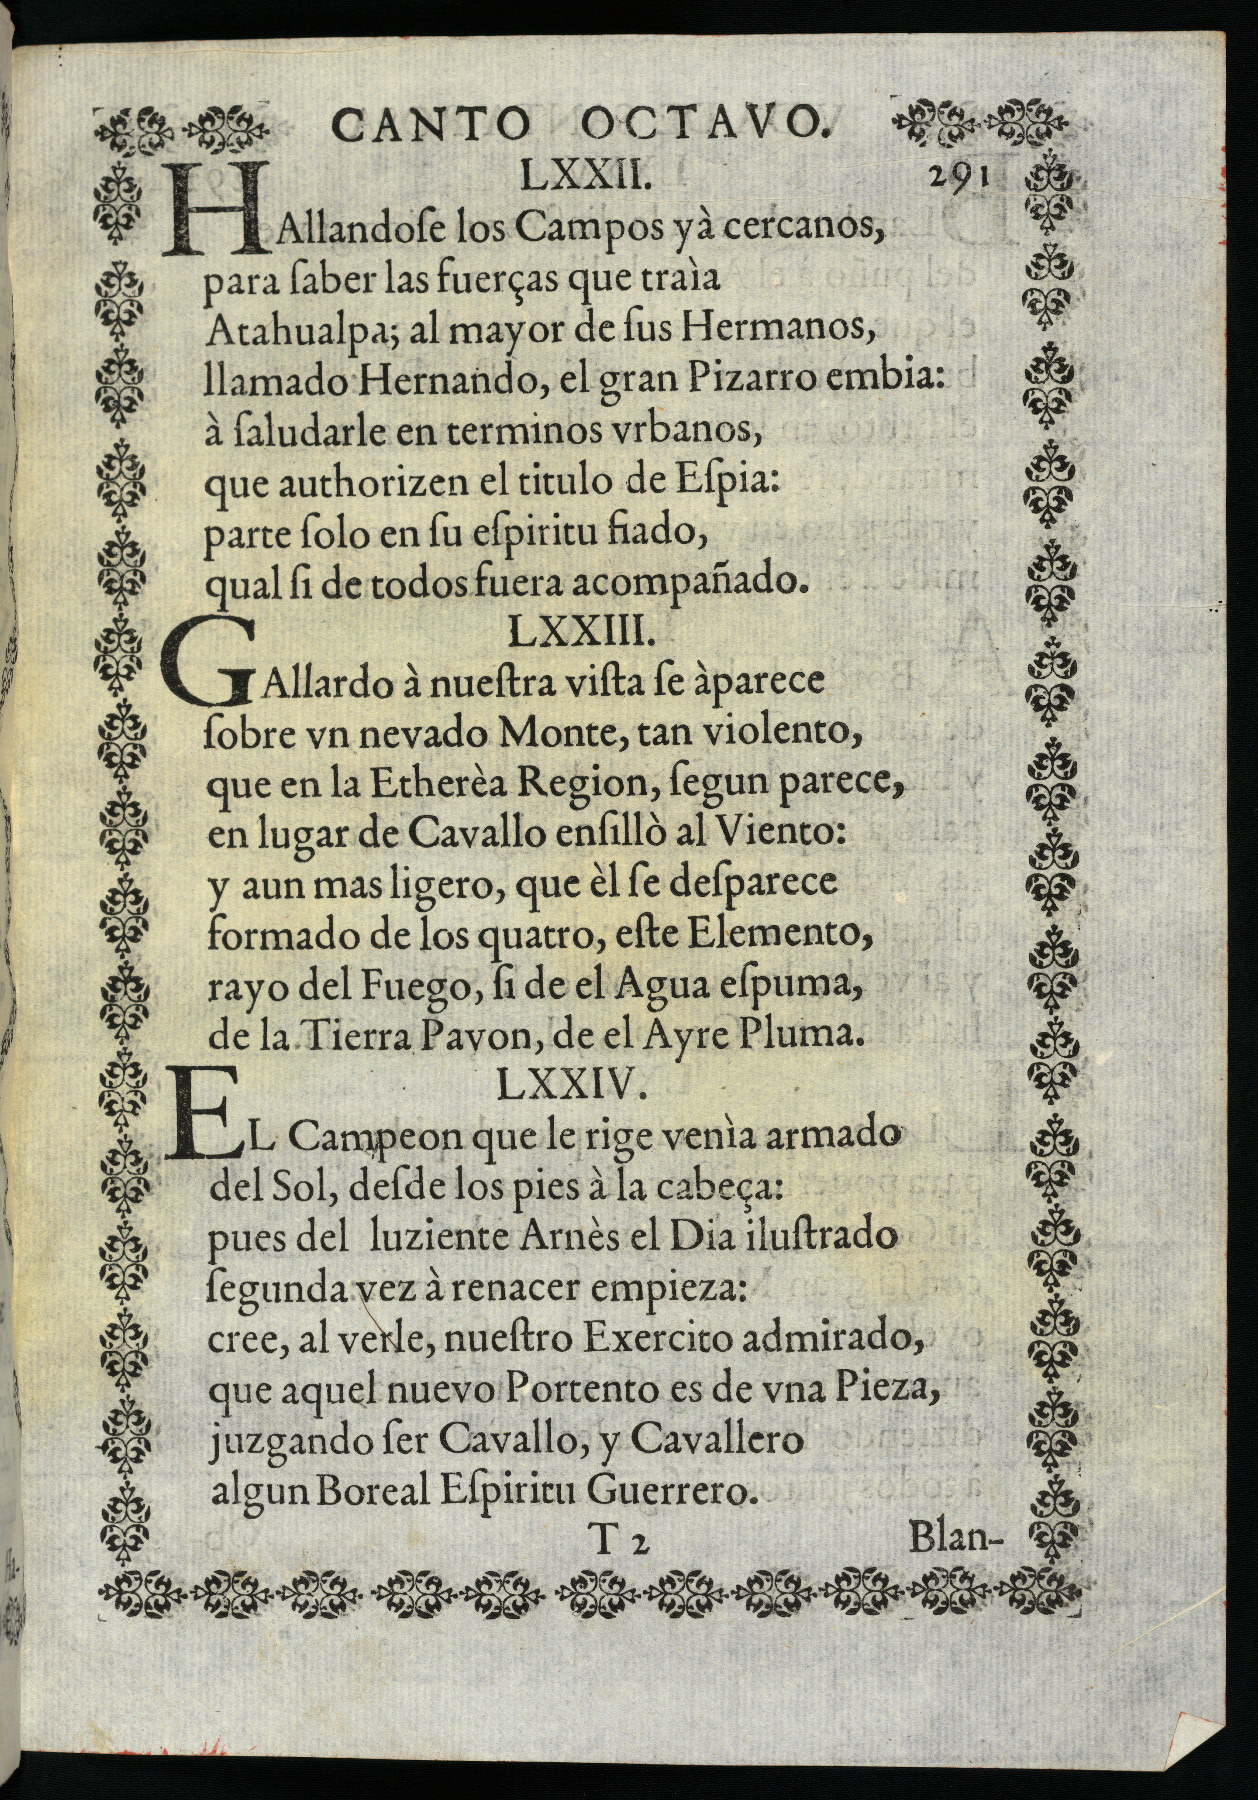 CANTO OCTAVO.
LXXII. 291
HAllandoſe los Campos yà cercanos,
para ſaber las fuerças que traìa
Atahualpa; al mayor de ſus Hermanos,
llamado Hernando, el gran Pizarro embia:
à ſaludarle en terminos vrbanos,
que authorizen el titulo de Eſpia:
parte ſolo en ſu eſpiritu fiado,
qual ſi de todos fuera acompañado.
LXXIII.
GAllardo à nueſtra viſta ſe àparece
ſobre vn nevado Monte, tan violento,
que en la Etherèa Region, ſegun parece,
en lugar de Cavallo enſillò al Viento:
y aun mas ligero, que èl ſe deſparece
formado de los quatro, eſte Elemento,
rayo del Fuego, ſi de el Agua eſpuma,
de la Tierra Pavon, de el Ayre Pluma.
LXXIV.
EL Campeon que le rige venìa armado
del Sol, deſde los pies à la cabeça:
pues del luziente Arnès el Dia iluſtrado
ſegunda vez à renacer empieza:
cree, al verle, nueſtro Exercito admirado,
que aquel nuevo Portento es de vna Pieza,
juzgando ſer Cavallo, y Cavallero
algun Boreal Eſpiritu Guerrero.
T 2 Blan-
Ha-